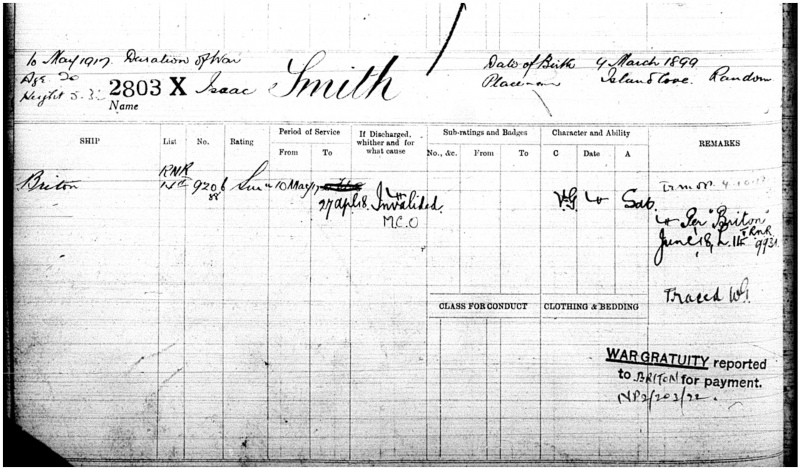 10 May 1917. Duration of War
Date of Birth 4 March 1899
Age 20
2803 X Isaac Smith
Place
Island Cove. Random
Height 5. 3
Name
SHIP
List
No.
Rating
Period of Service
From
To
If Discharged, whither and for what cause
Sub-ratings and Badges
No., &c.
From
To
Character and Ability
C
Date
A
REMARKS
Briton
RNR
920
10 May 17
27 Apl 18.
Invalided.
M.C.O
V.G.
Sat.
Per "Briton"
June 18,
Traced
CLASS FOR CONDUCT
CLOTHING & BEDDING
WAR GRATUITY reported
to BRITON for payment.
NP2/203/22.